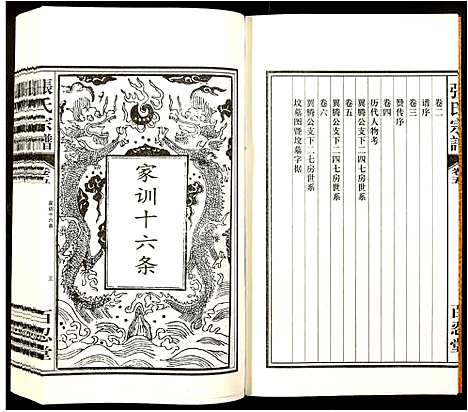 卷二
谱序
卷三
赞传序
卷四
历代人物考
翼腾公支下二四七房世系
卷五
翼腾公支下二一七房世系
卷六
坟墓图暨坟墓字据
百忍堂
家训十六条
張氏宗譜
卷五
家训十六条
三
百忍堂